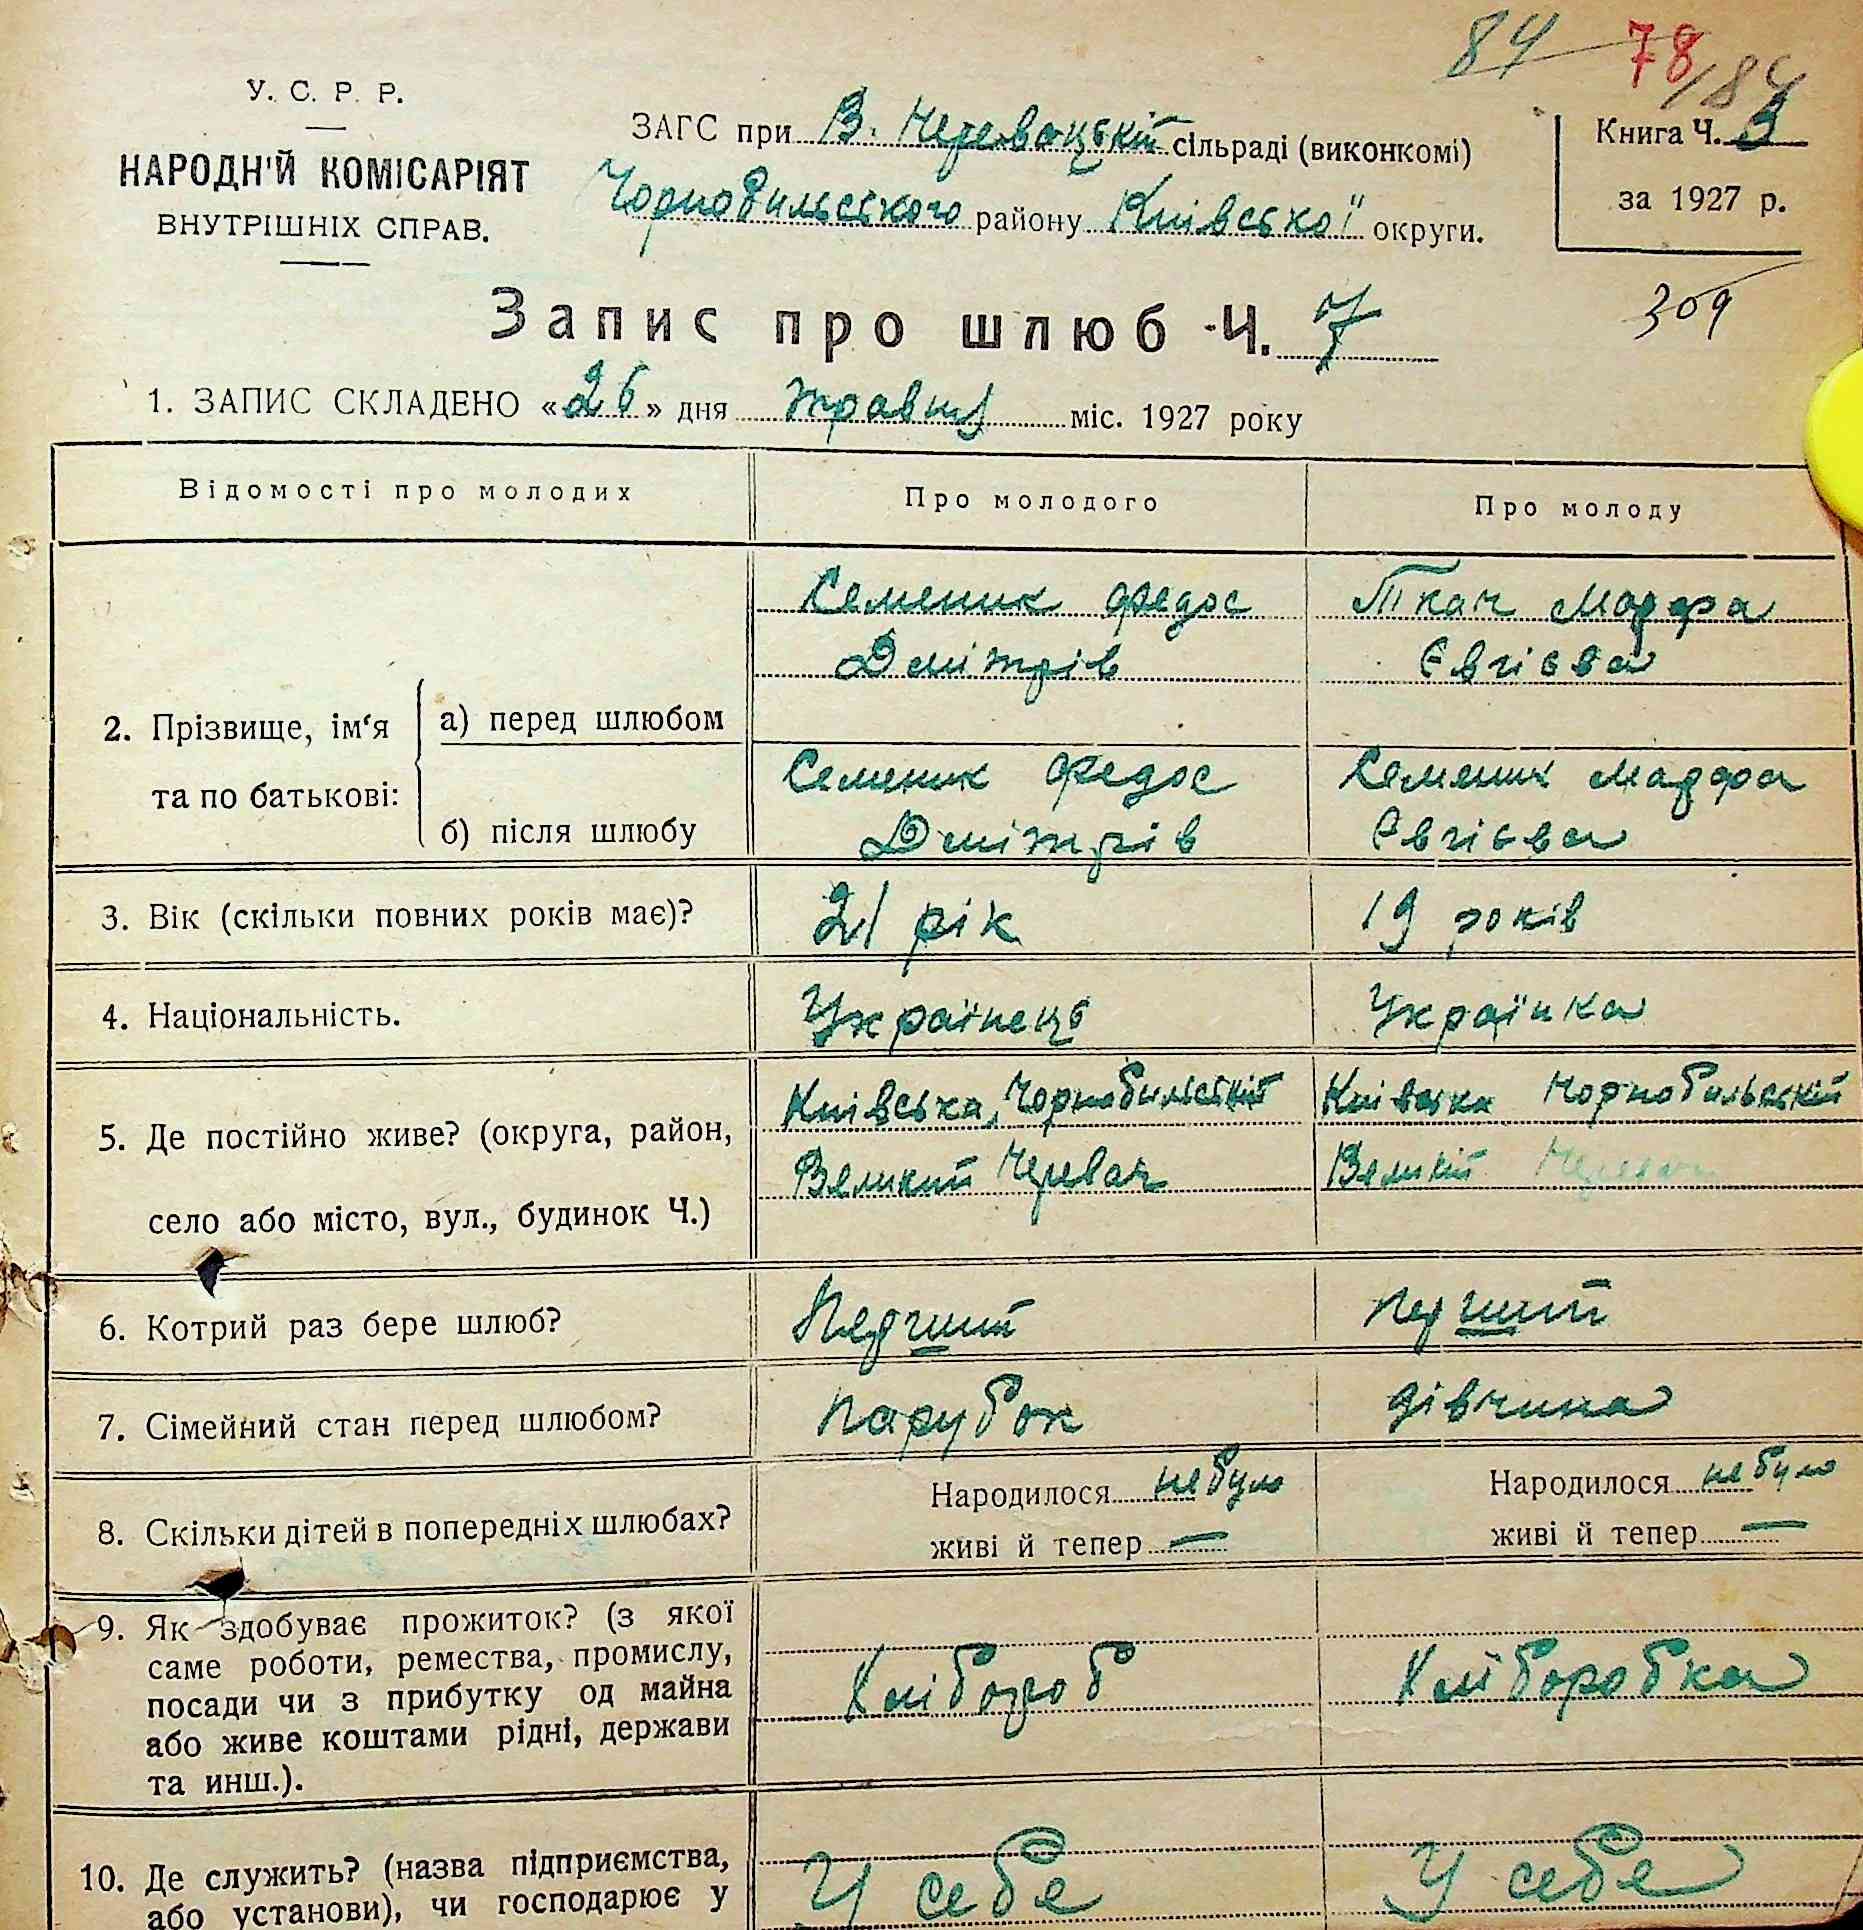 84 78 /84
У. С. Р. Р.
НАРОДНІЙ КОМІСАРІЯТ
ВНУТРІШНІХ СПРАВ.
ЗАГС при В. Черевацькій сільраді (виконкомі)
Чорнобильського району Київської округи.
Книга Ч. 3
за 1927 р.
309
Запис про шлюб Ч. 7
1. ЗАПИС СКЛАДЕНО «26» дня травня міс. 1927 року
Відомості про молодих Про молодого Про молоду
2. Прізвище, ім'я та по батькові:
а) перед шлюбом
Семеник Федос
Дмітрів
Ткач Марфа
Євгієва
б) після шлюбу
Семеник Федос
Дмітрів
Семеник Марфа
Євгієва
3. Вік (скільки повних років має)? 21 рік 19 років
4. Національність. Українець Українка
5. Де постійно живе? (округа, район,
село або місто, вул., будинок Ч.)
Київська, Чорнобильський
Великий Черевач
Київська Чорнобильській
Великій Черевач
6. Котрий раз бере шлюб? Перший Перший
7. Сімейний стан перед шлюбом? Парубок дівчина
8. Скільки дітей в попередніх шлюбах?
Народилося не було
живі й тепер —
Народилося не було
живі й тепер —
9. Як здобуває прожиток? (з якої
саме роботи, ремества, промислу,
посади чи з прибутку од майна
або живе коштами рідні, держави
та инш.).
Хлібороб
Хліборобка
10. Де служить? (назва підприємства,
або установи), чи господарює у
У себе
У себе